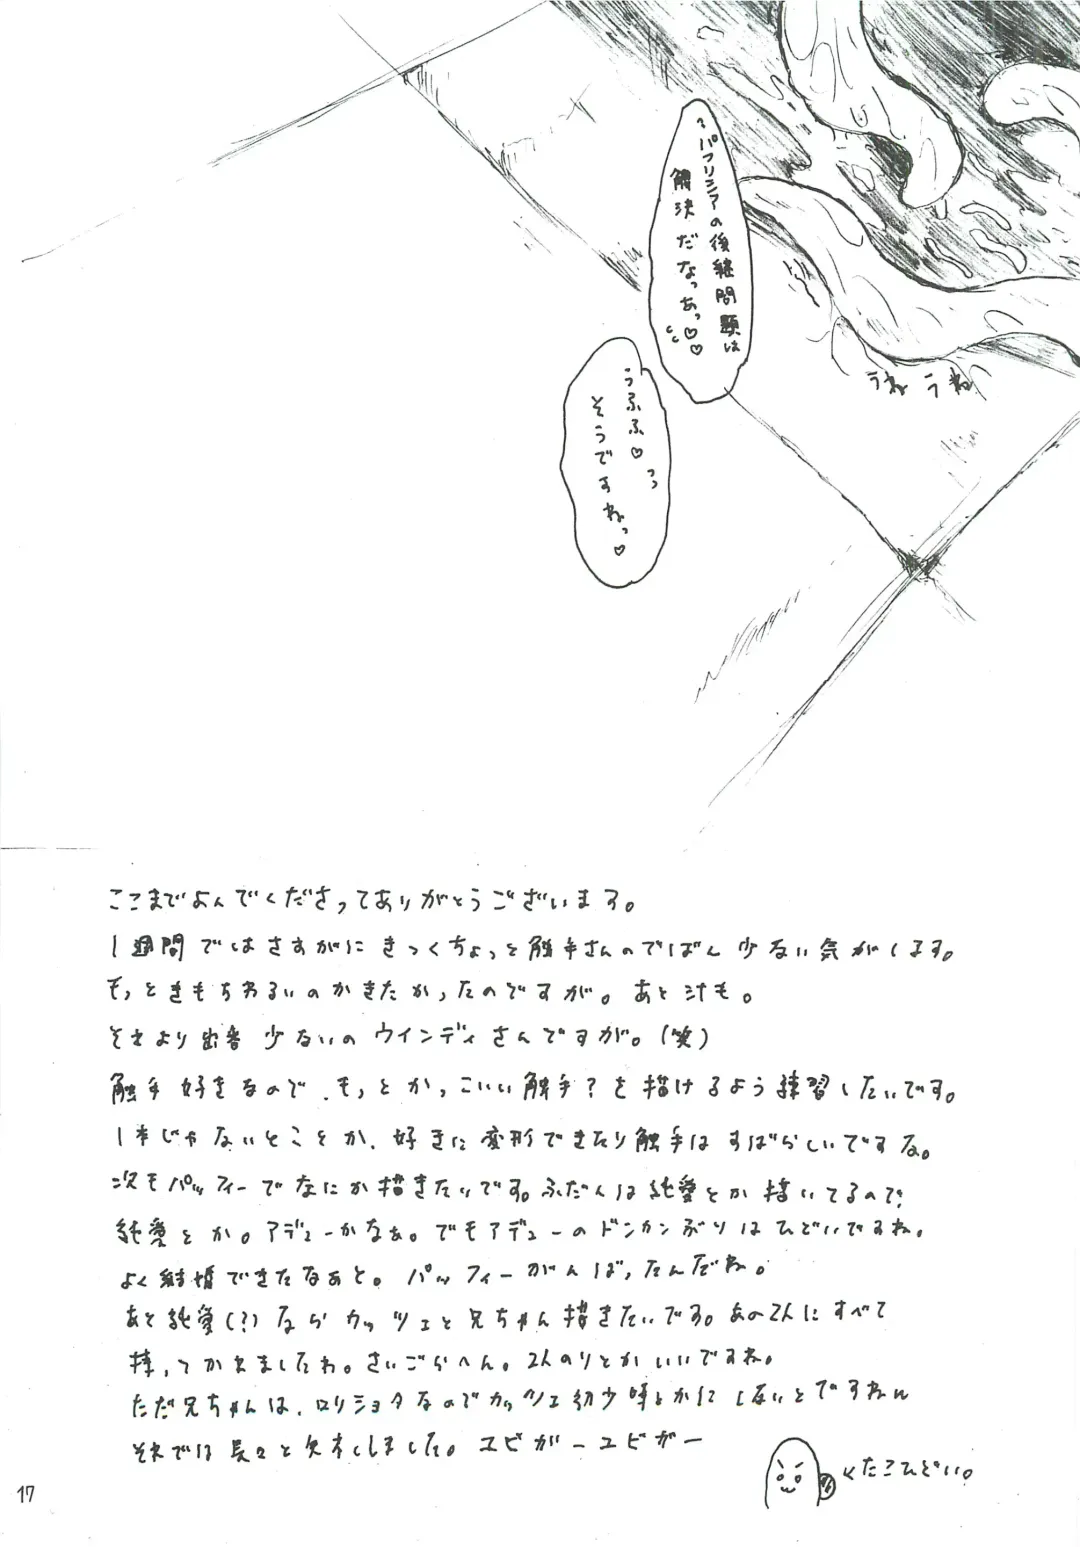 パフリシアの後継問題は
解決だなっあっ♡♡
うふふ♡っ
そうですねっ♡
うねうね
ここまでよんでくださってありがとうございます。
1週間ではさすがにきつくちょっと触手さんのでばん少ない気がします。
もっときもちわるいのかきたかったのですが。あと汁も。
それより出番少ないのウインディさんですが。(笑)
触手好きなので、もっとかっこいい触手?を描けるよう練習したいです。
1本じゃないとことか、好きに変形できたり触手はすばらしいですな。
次もパッフィーでなにか描きたいです。ふだんは純愛とか描いてるので
純愛とか。アデューかなぁ。でもアデューのドンカンぶりはひどいですね。
よく結婚できたなぁと。パッフィーがんばったんだね。
あと純愛(?)ならカッツェと兄ちゃん描きたいです。あの2人にすべて
持ってかれましたね。さいごらへん。2人のりとかいいですね。
ただ兄ちゃんは、ロリショタなのでカッツェ幼少時とかにしないとですね
それでは長々と失礼しました。ユビガーユビガー
<たこひどい。
17